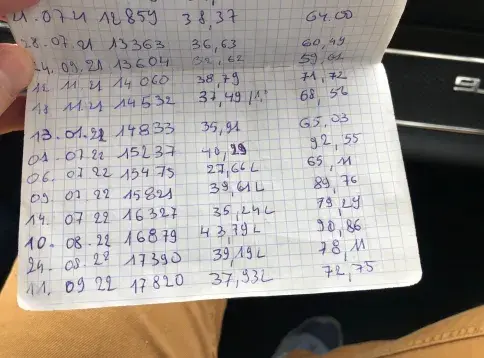 .07.21 12859 38,37 64.00
28.07.21 13363 36,63 60,49
.09.21 13604 32,62 59,61
11.21 14060 38,79 71,72
11.21 14532 37,49 68,56
13.01.22 14833 35,91 65,03
01.07.22 15237 40,29 92,55
06.07.22 15475 27,66L 65,11
09.07.22 15821 39,61L 89,76
14.07.22 16327 35,24L 79,29
10.08.22 16879 43,79L 90,86
24.08.22 17390 39,19L 78,11
11.09 22 17820 37,93L 72,75